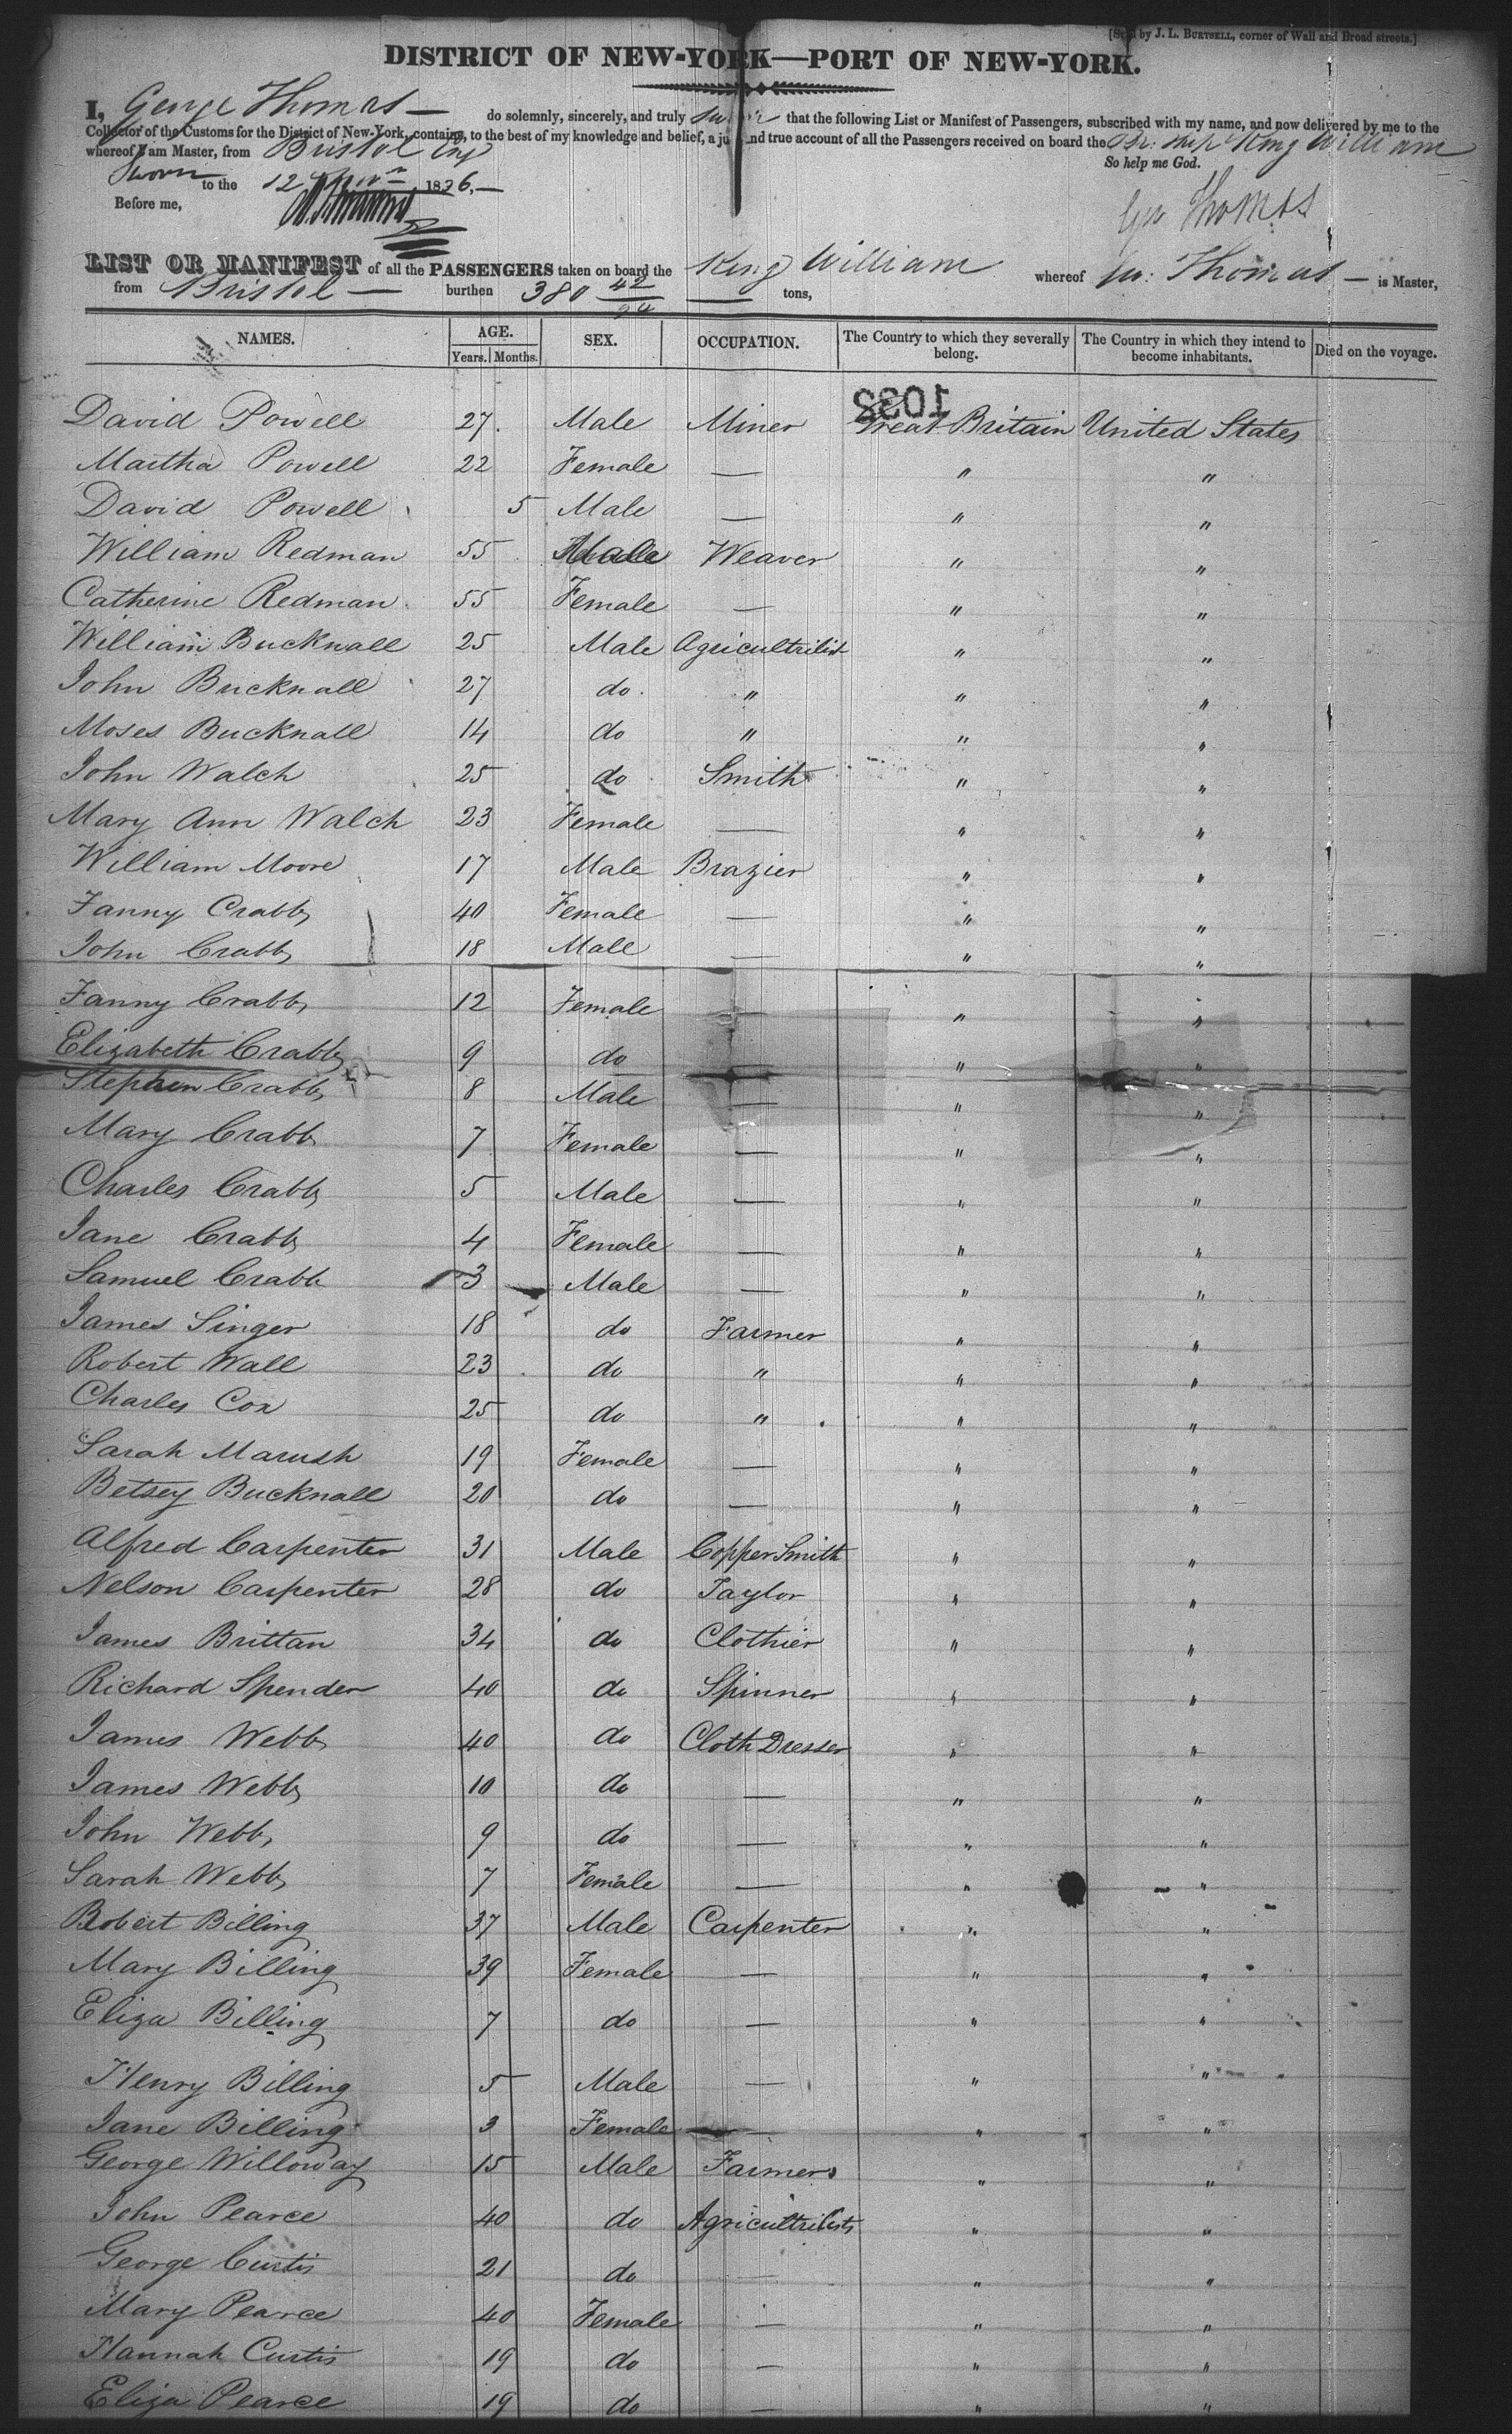 [Sold by J. L. BURTSELL, corner of Wall and Broad streets.]
DISTRICT OF NEW-YORK—PORT OF NEW-YORK.
I, George Thomas — do solemnly, sincerely, and truly swear that the following List or Manifest of Passengers, subscribed with my name, and now delivered by me to the
Collector of the Customs for the District of New-York, contains, to the best of my knowledge and belief, a just and true account of all the Passengers received on board the Br: Ship King William
whereof I am Master, from Bristol Eng So help me God.
Sworn to the 12 1836,—
Before me, Geo Thomas
LIST OR MANIFEST of all the PASSENGERS taken on board the King William whereof Geo: Thomas — is Master,
from Bristol — burthen 380 42/94 tons,
NAMES. AGE. SEX. OCCUPATION. The Country to which they severally belong. The Country in which they intend to become inhabitants. Died on the voyage.
Years. Months.
1038
David Powell 27. Male Miner Great Britain United States
Martha Powell 22 Female — " "
David Powell 5 Male — " "
William Redman 55 Male Weaver " "
Catherine Redman 55 Female — " "
William Bucknall 25 Male Agricultrilist " "
John Bucknall 27 do " " "
Moses Bucknall 14 do " " "
John Walch 25 do Smith " "
Mary Ann Walch 23 Female — " "
William Moore 17 Male Brazier " "
Fanny Crabb 40 Female — " "
John Crabb 18 Male — " "
Fanny Crabb 12 Female — " "
Elizabeth Crabb 9 do — " "
Stephen Crabb 8 Male — " "
Mary Crabb 7 Female — " "
Charles Crabb 5 Male — " "
Jane Crabb 4 Female — " "
Samuel Crabb 3 Male — " "
James Singer 18 do Farmer " "
Robert Wall 23 do " " "
Charles Cox 25 do " " "
Sarah Marush 19 Female — " "
Betsey Bucknall 20 do — " "
Alfred Carpenter 31 Male Copper Smith " "
Nelson Carpenter 28 do Taylor " "
James Brittan 34 do Clothier " "
Richard Spender 40 do Spinner " "
James Webb 40 do Cloth Dresser " "
James Webb 10 do — " "
John Webb 9 do — " "
Sarah Webb 7 Female — " "
Robert Billing 37 Male Carpenter " "
Mary Billing 39 Female — " "
Eliza Billing 7 do — " "
Henry Billing 5 Male — " "
Jane Billing 3 Female — " "
George Willoway 15 Male Farmers " "
John Pearce 40 do Agricultrilists " "
George Curtis 21 do — " "
Mary Pearce 40 Female — " "
Hannah Curtis 19 do — " "
Eliza Pearce 19 do — " "